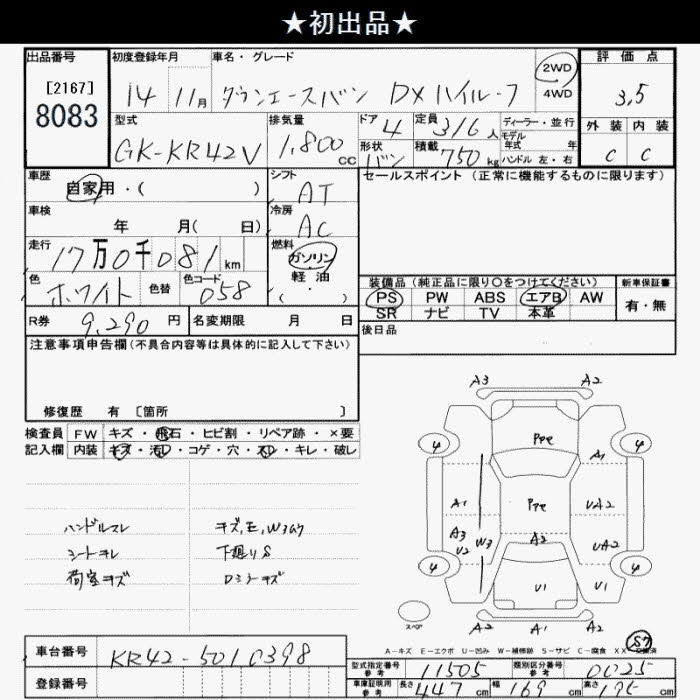 ★初出品★
出品番号 初度登録年月 車名・グレード 評価点
[2167] 14 11月 タウンエースバン DX ハイルーフ 2WD 4WD 3,5
8083
型式 排気量 ドア 定員 ディーラー・並行 外装 内装
GK-KR42V 1,800 CC 4 3/6 人 モデル年式 年 C C
形状 積載
バン 750 kg ハンドル 左・右
車歴 シフト セールスポイント (正常に機能するものに限ります)
自家用・( ) AT
車検 冷房
年 月( 日) AC
走行 燃料
17万0千081 km ガソリン
軽・油
色 色替 色コード ( ・ )
ホワイト 058
装備品 (純正品に限り〇をつけてください) 新車保証書
PS PW ABS エアB AW 有・無
SR ナビ TV 本革
R券 9,290 円 名変期限 月 日
後日品
注意事項申告欄(不具合内容等は具体的に記入して下さい)
修復歴 有 〔箇所 〕
検査員 FW キズ・飛石・ヒビ割・リペア跡・×要
記入欄 内装 キズ・汚れ・コゲ・穴・スレ・キレ・破レ
ハンドルスレ キズ,E,W3ケ
シートキレ 下廻りS
荷室キズ Dミラーキズ
A3 A2
4 Ppe 4
A1
A1 Ppe UA2
A3 U2 W3 A2 UA2
4 4
U1 U1
スペア A2 A1 A2
S7
A-キズ E-エクボ U-凹み W-補修跡 S-サビ C-腐食 XX-交換済
車台番号 KR42-5010398
登録番号
型式指定番号 参考 11505 類別区分番号 参考 0025
車庫証明用 参考 長さ 447 cm 幅 169 cm 高さ cm